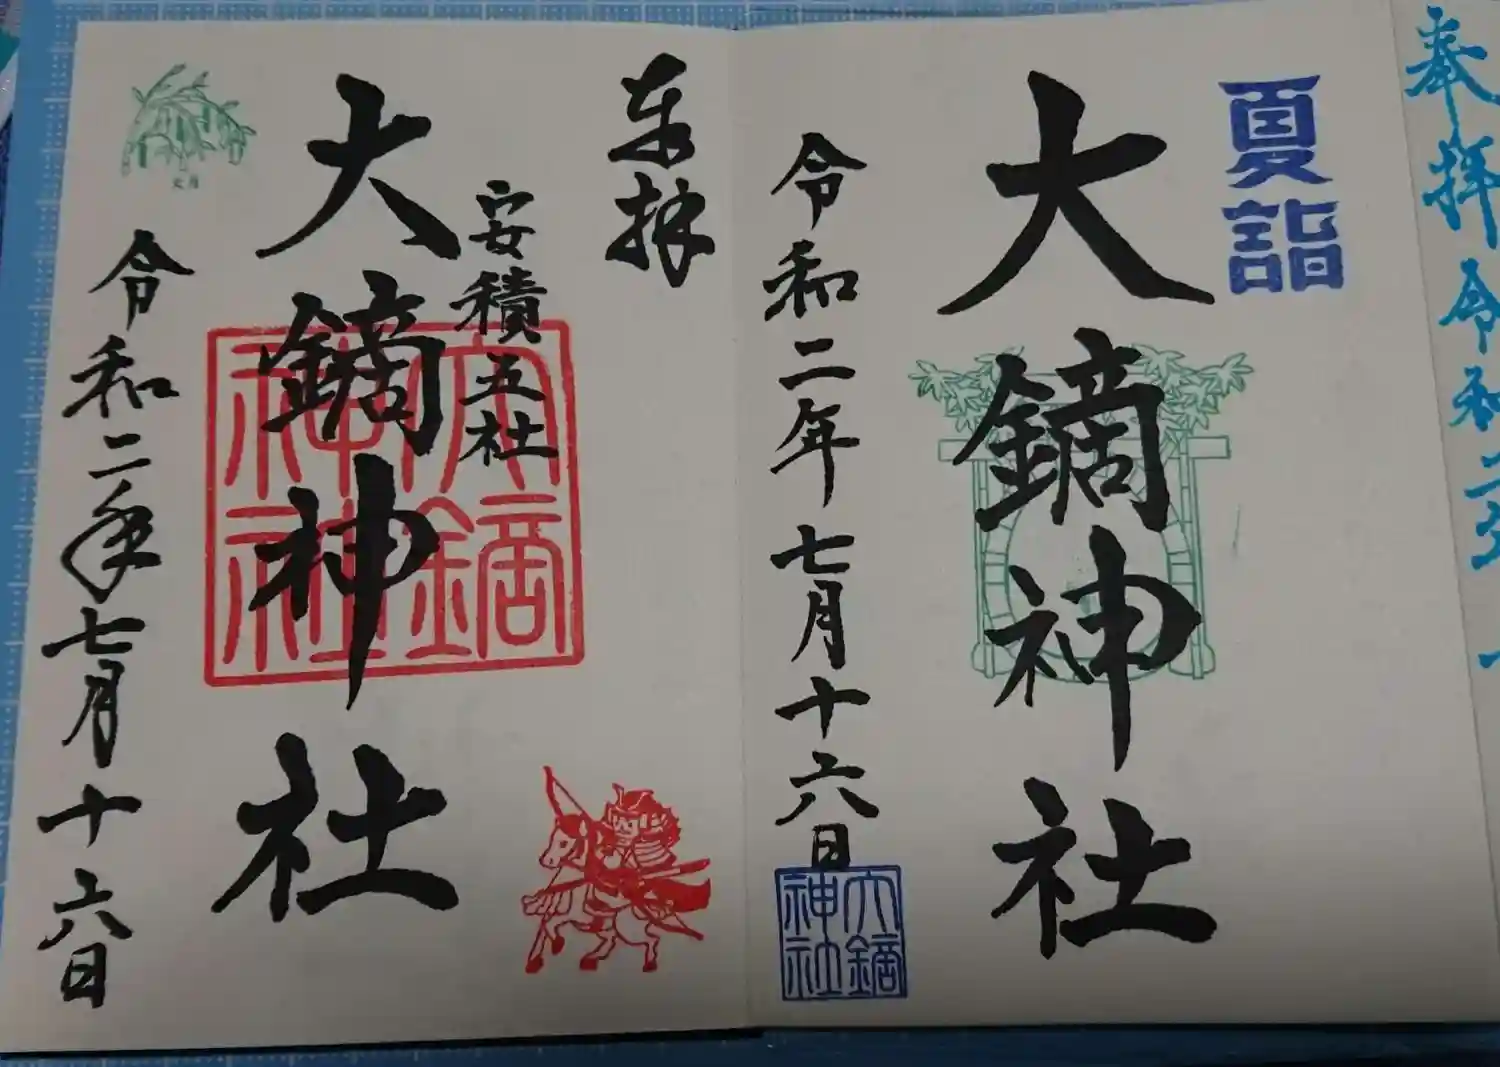 奉拝 令和二
夏詣
大鏑神社
令和二年七月十六日
大鏑神社
奉拝
安積五社
大鏑神社
大鏑神社
令和二年七月十六日
文月